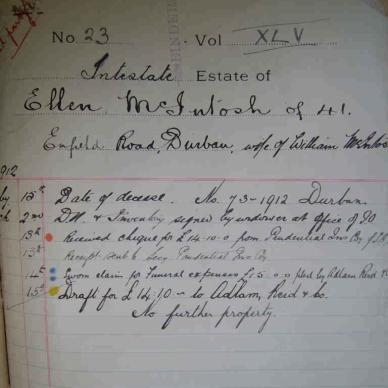 No. 23 . Vol XLV
BINDER
Intestate Estate of
Ellen McIntosh of 41.
Enfield Road, Durban, wife of William McIntos
1912
15th Date of decease. No. 73-1912 Durban.
2nd D.N. & Inventory signed by widower at office of
13th Received cheque for £14-10-0 from Prudential Ins Co of
13th Receipt sent to Secy Prudential Ins Co
14th Sworn claim for Funeral expenses £15.0.0 filed by Adlam Reid &
15th Draft for £14:10 - to Adlam, Reid & Co.
No further property.